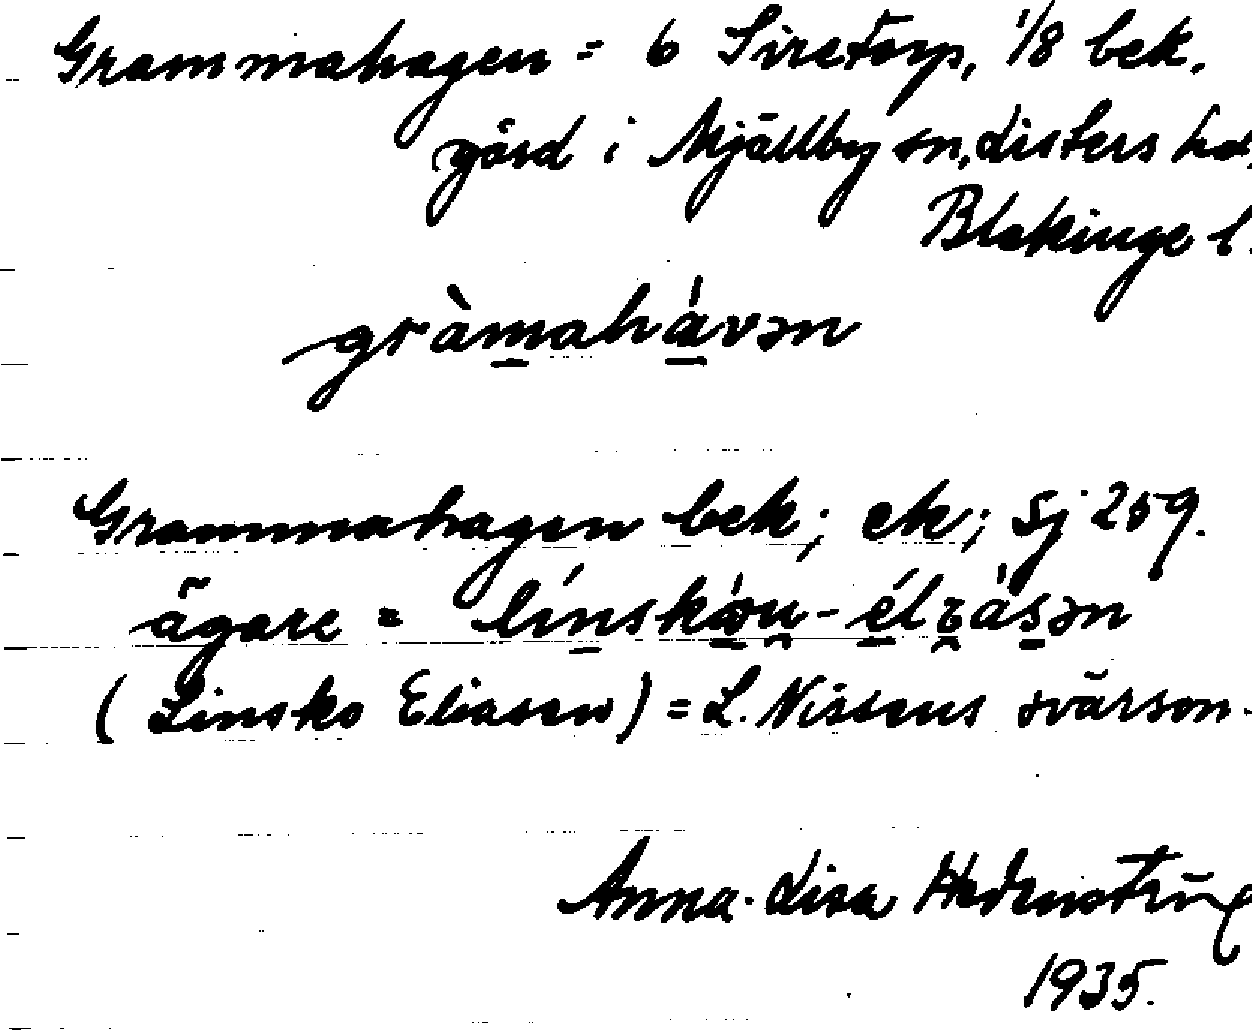 Grammahagen = 6 Siretorp, 1/8 bek.
gård i Mjällby sn, Listers hd,
Blekinge l.
gràmahávən
Grammahagen bek; ek; Sj 259.
ägare =
(Linsko Eliasen) = L. Nissens svärson.
Anna-Lisa
1935.